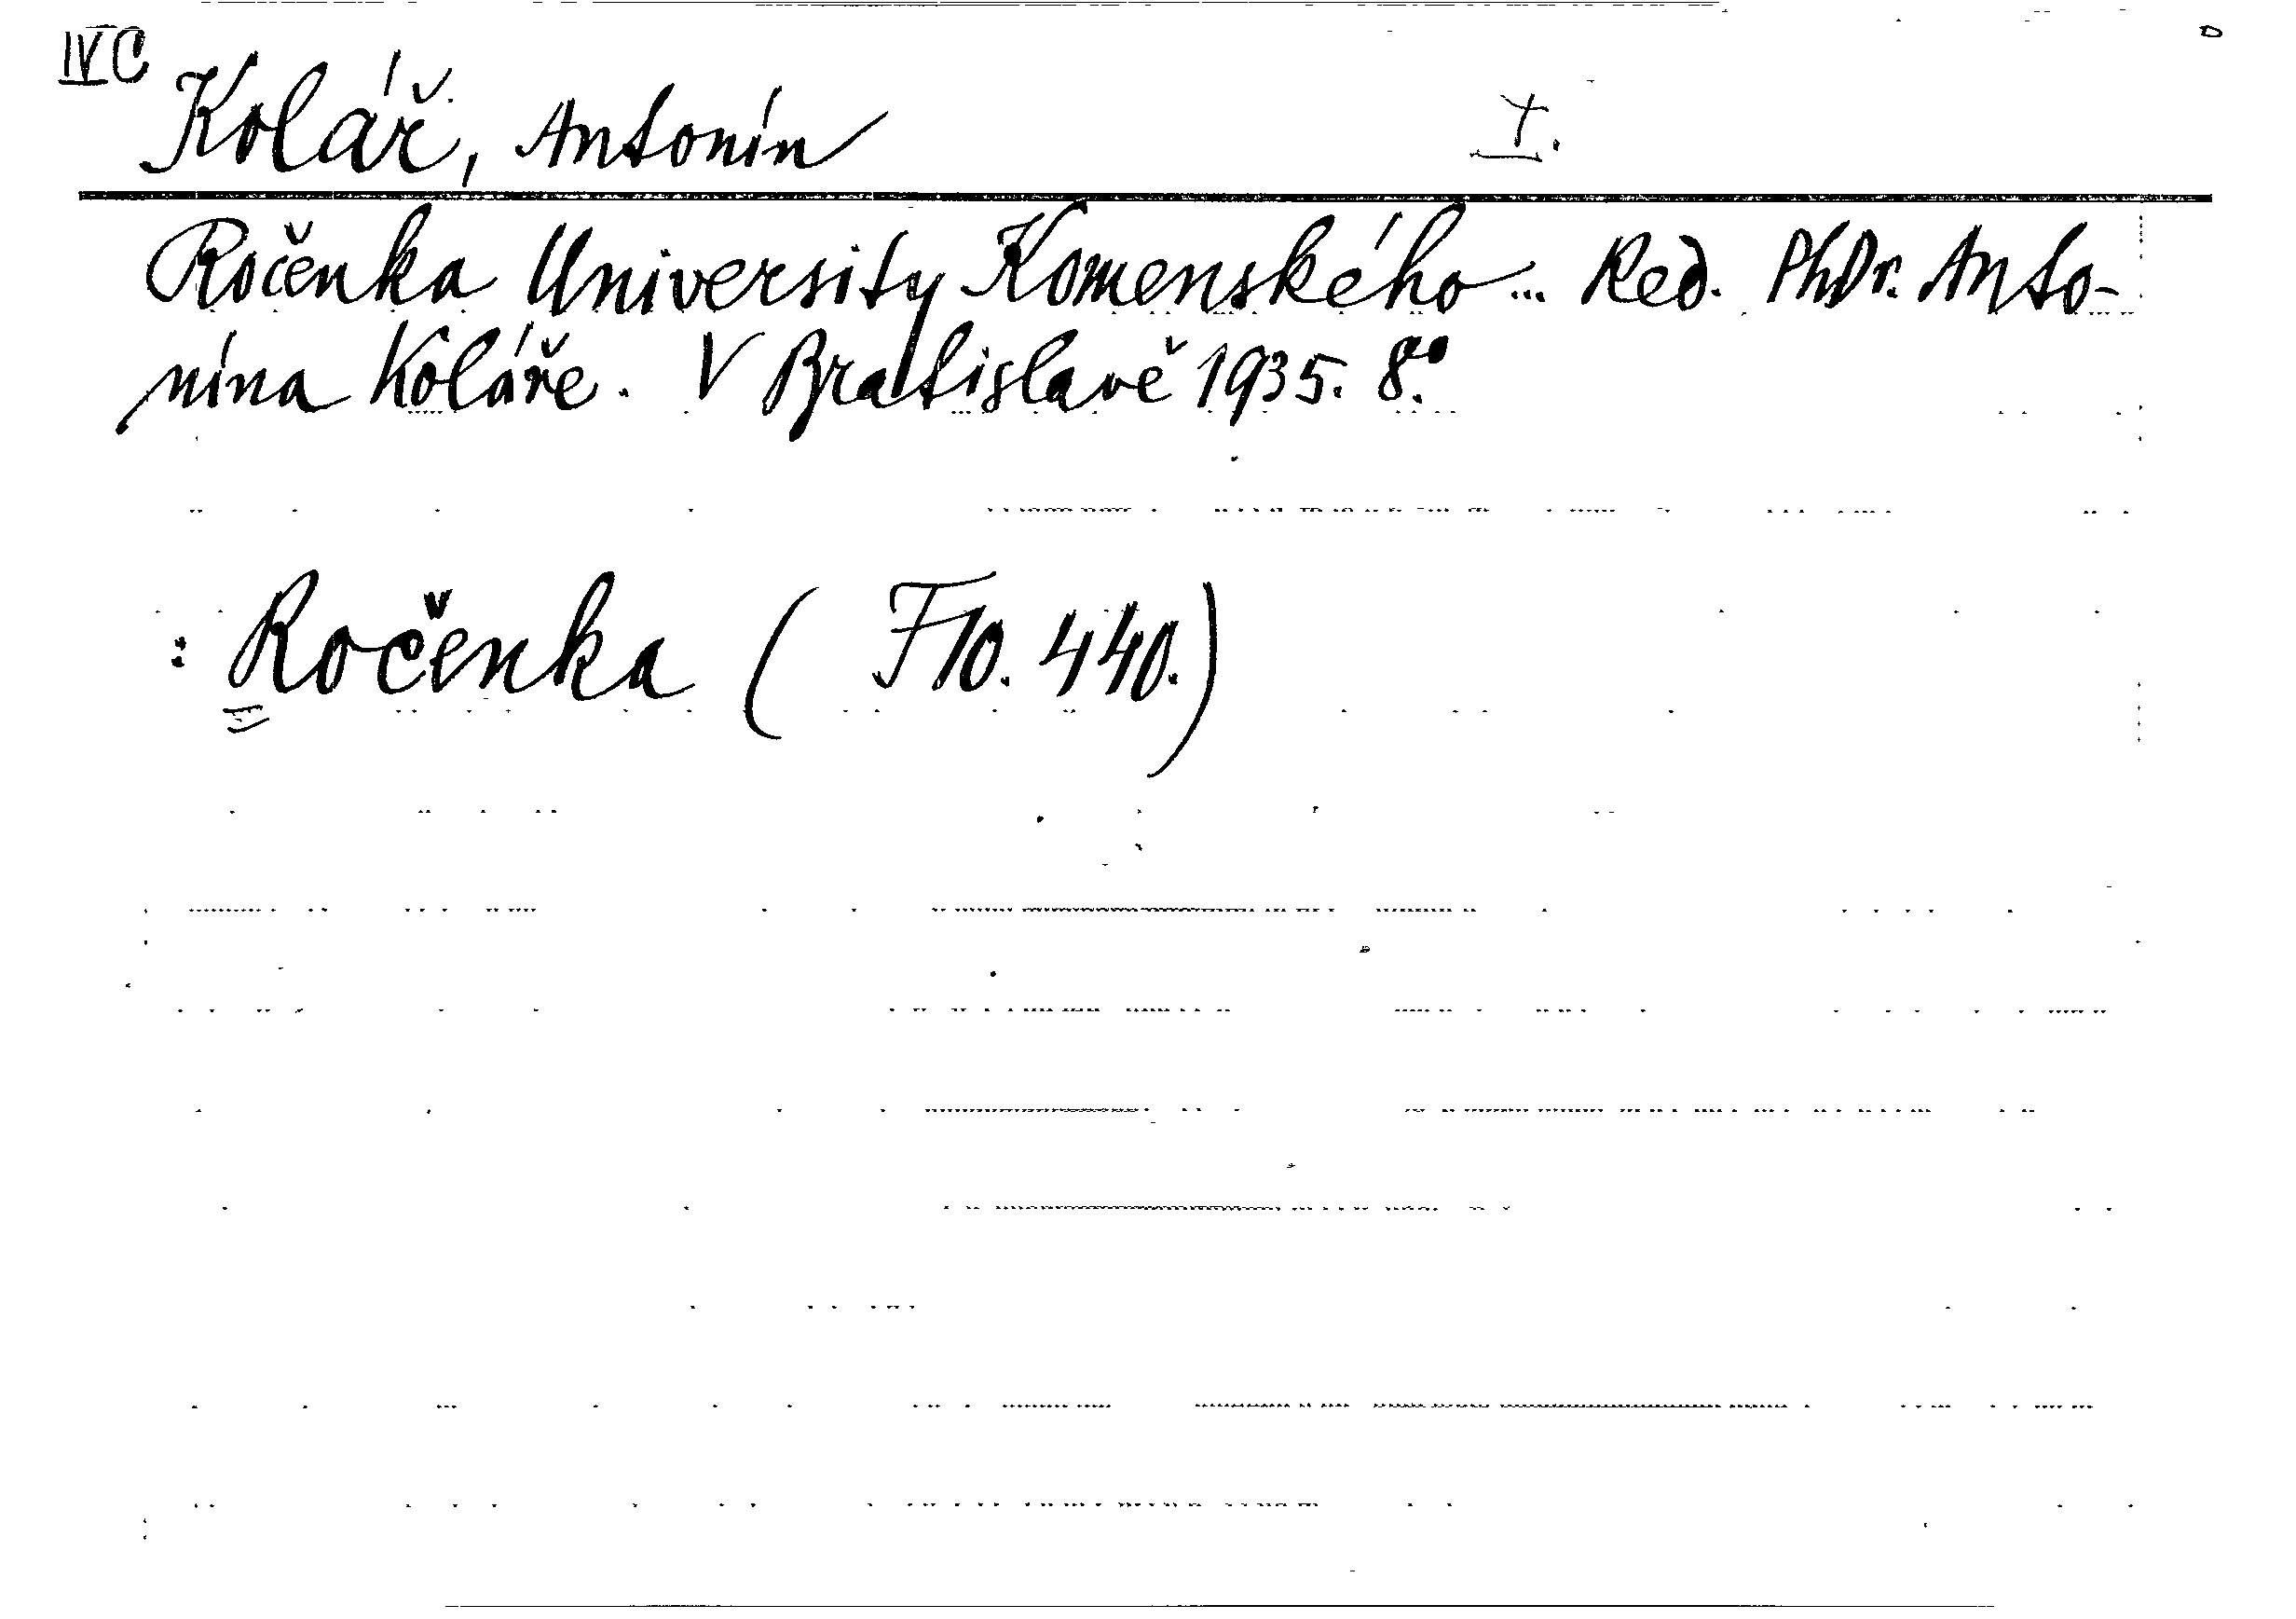 IV C
Kolář, Antonín I.
Ročenka University Komenského... Red. PhDr. Anto-
nína Koláře. V Bratislavě 1935. 8.°
: Ročenka ( F 10. 440.)